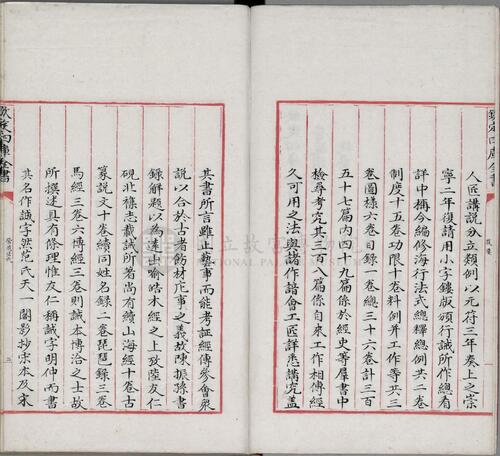 欽定四庫全書
提要
人匠講說分立類例以元符三年奏上之崇
寧二年復請用小字鏤版頒行誡所作總看
詳中稱今編修海行法式總釋總例共二卷
制度十五卷功限十卷料例并工作等共三
卷圖樣六卷目録一卷總三十六卷計三百
五十七篇內四十九篇係於經史等羣書中
檢尋考究其三百八篇係自來工作相傳經
久可用之法與諸作諳會工匠詳悉講究蓋
其書所言雖止藝事而能考證經傳參會衆
說以合於古者飭材庀事之義故陳振孫書
録解題以為遠出喻皓木經之上攷陸友仁
硯北雜志載誡所著尚有續山海經十卷古
篆說文十卷續同姓名録二卷琵琶録三卷
馬經三卷六博經三卷則誡本博洽之士故
所撰述具有條理惟友仁稱誡字明仲而書
其名作誠字然范氏天一閣影抄宋本及宋
欽定四庫全書
營造法式